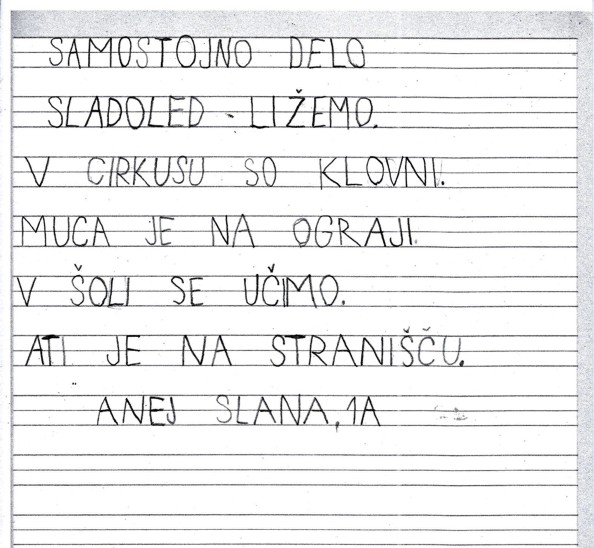 SAMOSTOJNO DELO
SLADOLED - LIŽEMO.
V CIRKUSU SO KLOVNI.
MUCA JE NA OGRAJI.
V ŠOLI SE UČIMO.
ATI JE NA STRANIŠČU.
ANEJ SLANA, 1A